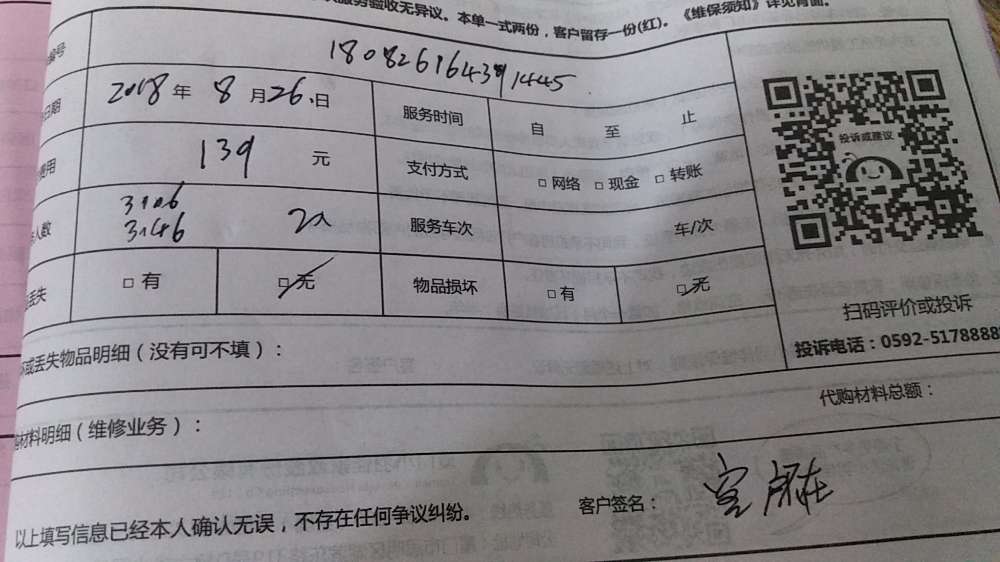 服务验收无异议。本单一式两份，客户留存一份(红)。《维保须知》详见背面。
编号 180826164391445
日期 2018年 8月26日 服务时间 自 至 止
费用 139 元 支付方式 □网络 □现金 □转账
人数 3106 3146 2人 服务车次 车/次
丢失 □有 □无 物品损坏 □有 □无
投诉或建议
扫码评价或投诉
投诉电话：0592-5178888
坏或丢失物品明细（没有可不填）：
代购材料总额：
材料明细（维修业务）：
以上填写信息已经本人确认无误，不存在任何争议纠纷。 客户签名：